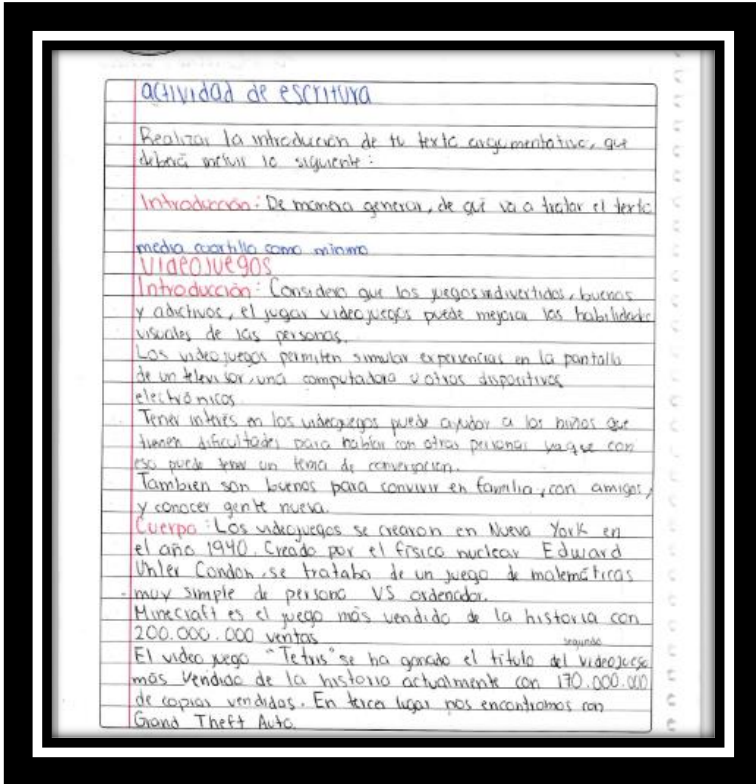 actividad de escritura
Realizar la introducción de tu texto argumentativo, que
deberá incluir lo siguiente:
Introducción: De manera general, de qué va a tratar el texto
media cuartilla como mínimo
Videojuegos
Introducción: Considero que los juegos divertidos, buenos
y adictivos, el jugar videojuegos puede mejorar las habilidades
visuales de las personas.
Los videojuegos permiten simular experiencias en la pantalla
de un televisor, una computadora u otros dispositivos
electrónicos.
Tener interés en los videojuegos puede ayudar a los niños que
tienen dificultades para hablar con otras personas ya que con
eso puede tener un tema de conversación.
También son buenos para convivir en familia, con amigos,
y conocer gente nueva.
Cuerpo: Los videojuegos se crearon en Nueva York en
el año 1940. Creado por el físico nuclear Edward
Uhler Condon, se trataba de un juego de matemáticas
muy simple de persona VS ordenador.
Minecraft es el juego más vendido de la historia con
200.000.000 ventas
segundo
El video juego "Tetris" se ha ganado el título del videojuego
más vendido de la historia actualmente con 170.000.000
de copias vendidas. En tercer lugar nos encontramos con
Grand Theft Auto.